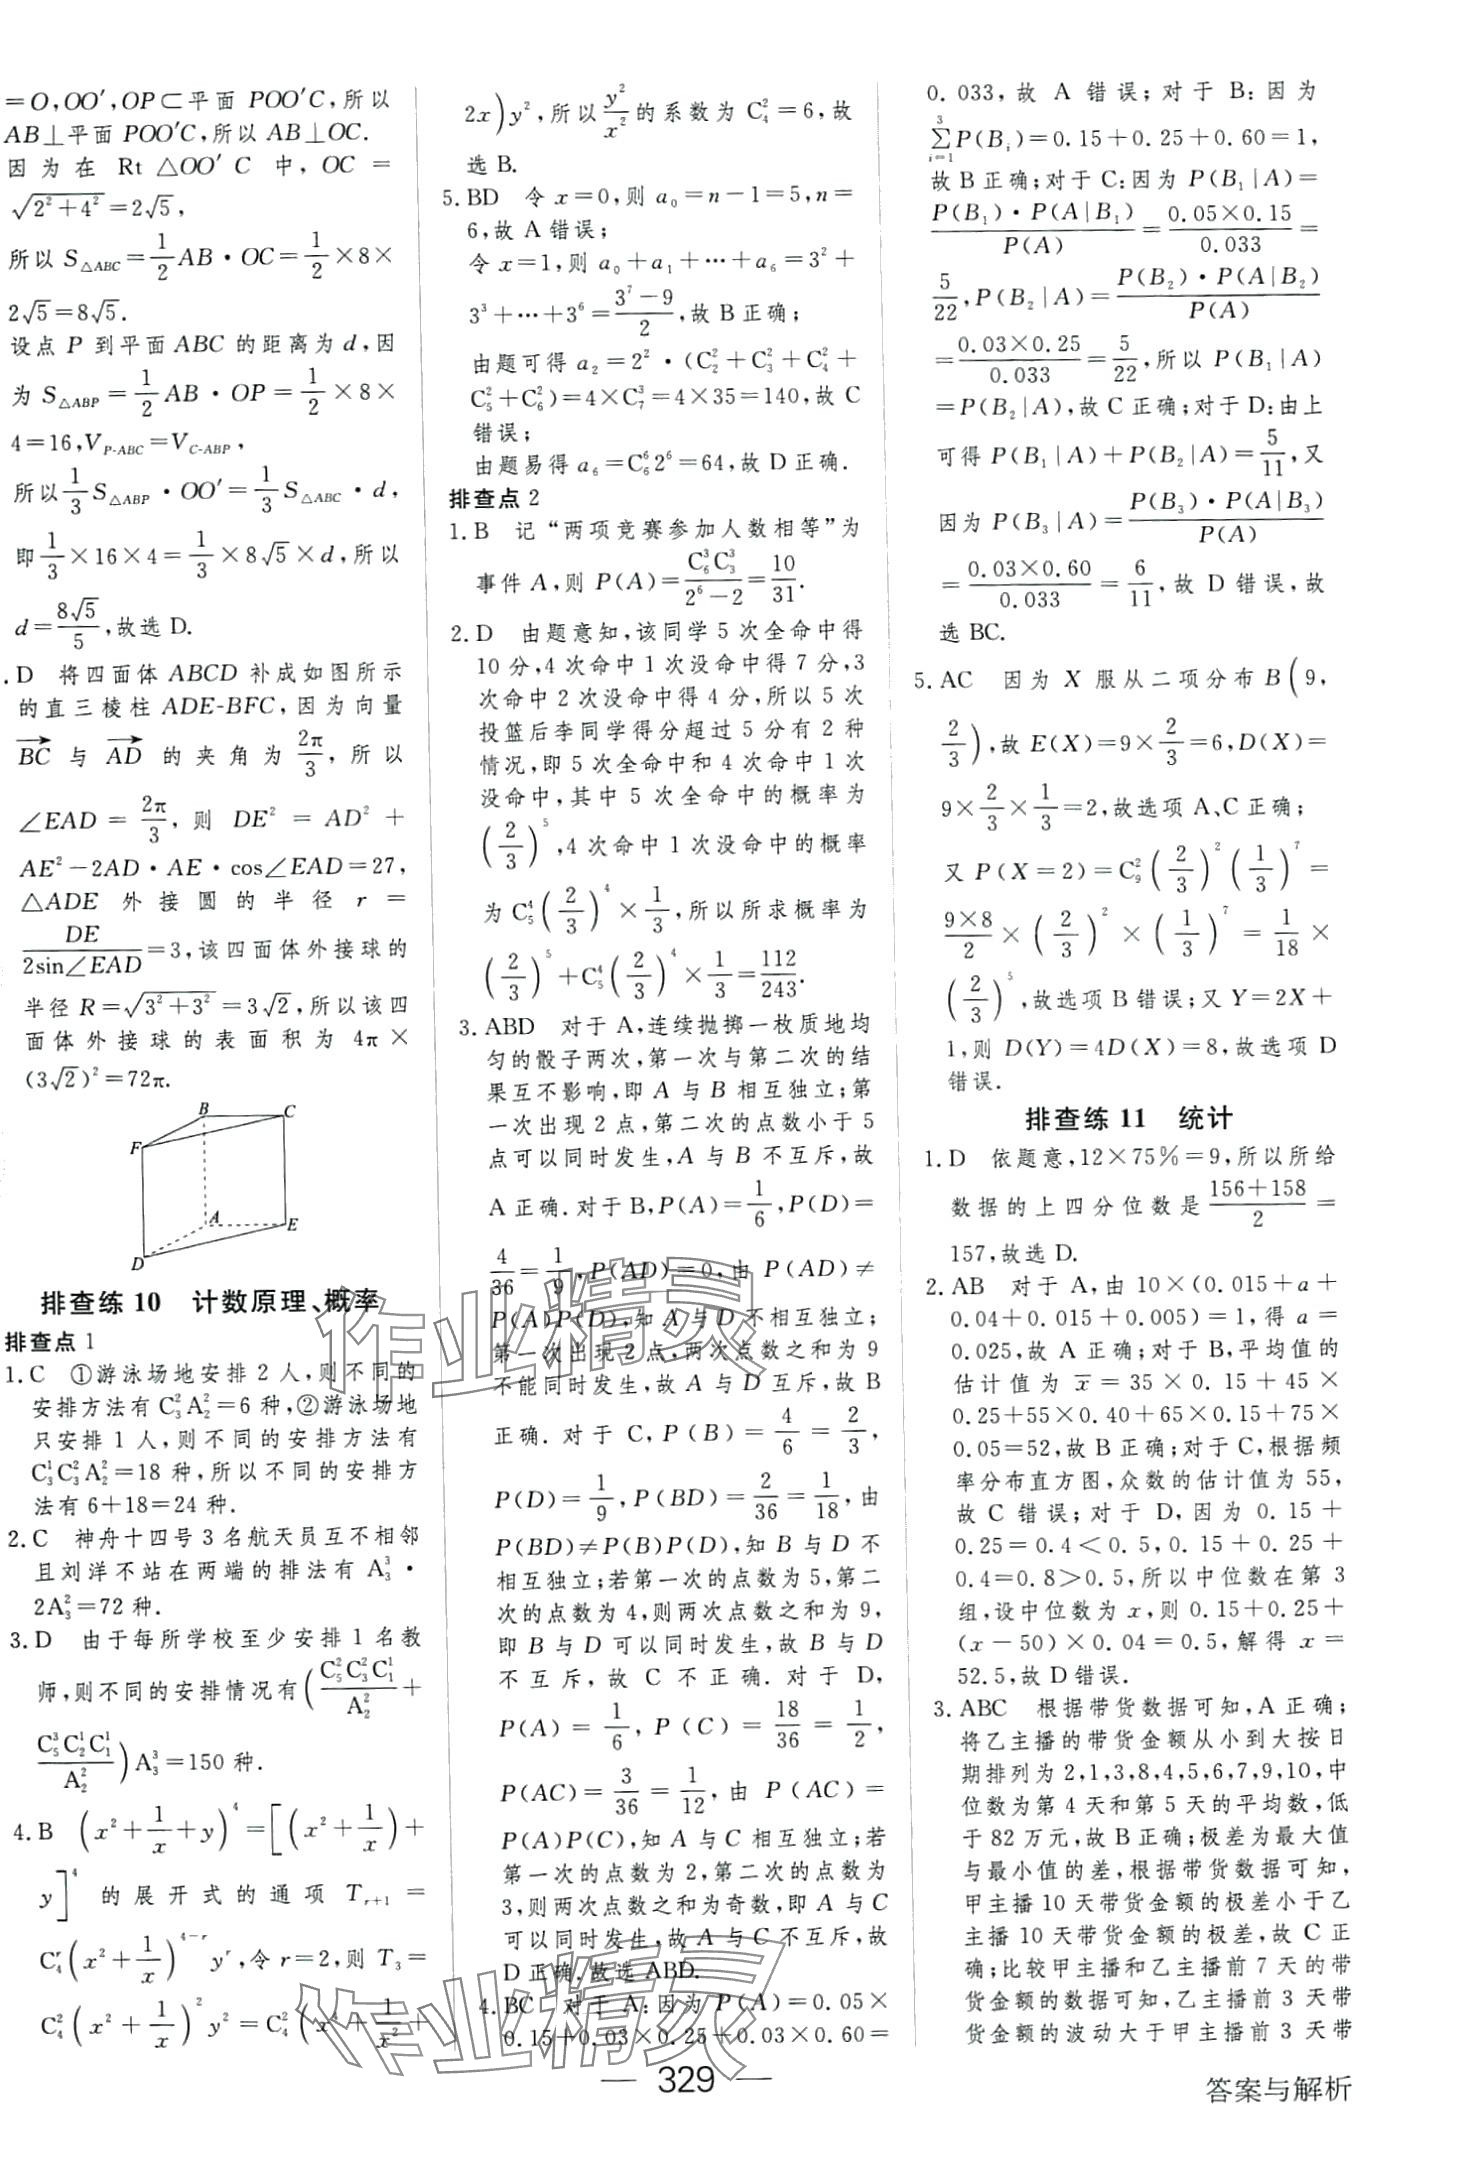 =O,OO′,OP⊂平面 POO′C,所以
AB⊥平面 POO′C,所以 AB⊥OC.
因为在 Rt △OO′C 中, OC =
√(2²+4²)=2√5,
所以 S△ABC=1/2 AB·OC=1/2×8×
2√5=8√5.
设点 P 到平面 ABC 的距离为 d,因
为 S△ABP=1/2 AB·OP=1/2×8×
4=16,V_{P-ABC}=V_{C-ABP},
所以 1/3 S△ABP·OO′=1/3 S△ABC·d,
即 1/3×16×4=1/3×8√5×d,所以
d=8√5/5,故选 D.
.D 将四面体 ABCD 补成如图所示
的直三棱柱 ADE-BFC,因为向量
BC→ 与 AD→ 的夹角为 2π/3, 所以
∠EAD = 2π/3, 则 DE² = AD² +
AE²-2AD·AE·cos∠EAD=27,
△ADE 外接圆的半径 r =
DE/(2sin∠EAD)=3,该四面体外接球的
半径 R=√(3²+3²)=3√2,所以该四
面体外接球的表面积为 4π×
(3√2)²=72π.
B C F A E D
排查练 10 计数原理、概率
排查点 1
1.C ①游泳场地安排 2 人,则不同的
安排方法有 C₃²A₂²=6 种,②游泳场地
只安排 1 人,则不同的安排方法有
C₃¹C₃²A₂²=18 种,所以不同的安排方
法有 6+18=24 种.
2.C 神舟十四号 3 名航天员互不相邻
且刘洋不站在两端的排法有 A₃³·
2A₃²=72 种.
3.D 由于每所学校至少安排 1 名教
师,则不同的安排情况有(C₅²C₃²C₁¹/A₂²+
C₅³C₂¹C₁¹/A₂²)A₃³=150 种.
4.B (x²+1/x+y)⁴=[(x²+1/x)+
y]⁴ 的展开式的通项 T_{r+1} =
C₄ʳ(x²+1/x)^{4-r}yʳ,令 r=2,则 T₃=
C₄²(x²+1/x)²y²=C₄²(x⁴+1/x²+
2x)y²,所以 y²/x² 的系数为 C₄²=6,故
选 B.
5.BD 令 x=0,则 a₀=n-1=5,n=
6,故 A 错误;
令 x=1,则 a₀+a₁+⋯+a₆=3²+
3³+⋯+3⁶=(3⁷-9)/2,故 B 正确;
由题可得 a₂=2²·(C₂²+C₃²+C₄²+
C₅²+C₆²)=4×C₇³=4×35=140,故 C
错误;
由题易得 a₆=C₆⁶2⁶=64,故 D 正确.
排查点 2
1.B 记“两项竞赛参加人数相等”为
事件 A,则 P(A)=C₆³C₃³/(2⁶-2)=10/31.
2.D 由题意知,该同学 5 次全命中得
10 分,4 次命中 1 次没命中得 7 分,3
次命中 2 次没命中得 4 分,所以 5 次
投篮后李同学得分超过 5 分有 2 种
情况,即 5 次全命中和 4 次命中 1 次
没命中,其中 5 次全命中的概率为
(2/3)⁵,4 次命中 1 次没命中的概率
为 C₅⁴(2/3)⁴×1/3,所以所求概率为
(2/3)⁵+C₅⁴(2/3)⁴×1/3=112/243.
3.ABD 对于 A,连续抛掷一枚质地均
匀的骰子两次,第一次与第二次的结
果互不影响,即 A 与 B 相互独立;第
一次出现 2 点,第二次的点数小于 5
点可以同时发生,A 与 B 不互斥,故
A 正确.对于 B,P(A)=1/6,P(D)=
4/36=1/9,P(AD)=0,由 P(AD)≠
P(A)P(D),知 A 与 D 不相互独立;
第一次出现 2 点,两次点数之和为 9
不能同时发生,故 A 与 D 互斥,故 B
正确. 对于 C, P(B) = 4/6 = 2/3,
P(D)=1/9,P(BD)=2/36=1/18,由
P(BD)≠P(B)P(D),知 B 与 D 不
相互独立;若第一次的点数为 5,第二
次的点数为 4,则两次点数之和为 9,
即 B 与 D 可以同时发生,故 B 与 D
不互斥,故 C 不正确. 对于 D,
P(A) = 1/6, P(C) = 18/36 = 1/2,
P(AC)= 3/36 = 1/12, 由 P(AC)=
P(A)P(C),知 A 与 C 相互独立;若
第一次的点数为 2,第二次的点数为
3,则两次点数之和为奇数,即 A 与 C
可以同时发生,故 A 与 C 不互斥,故
D 正确.故选 ABD.
4.BC 对于 A:因为 P(A)=0.05×
0.15+0.03×0.25+0.03×0.60=
0.033,故 A 错误;对于 B:因为
∑_{i=1}^{3}P(Bᵢ)=0.15+0.25+0.60=1,
故 B 正确;对于 C:因为 P(B₁|A)=
P(B₁)·P(A|B₁)/P(A)=0.05×0.15/0.033=
5/22,P(B₂|A)=P(B₂)·P(A|B₂)/P(A)
=0.03×0.25/0.033=5/22,所以 P(B₁|A)
=P(B₂|A),故 C 正确;对于 D:由上
可得 P(B₁|A)+P(B₂|A)=5/11,又
因为 P(B₃|A)=P(B₃)·P(A|B₃)/P(A)
=0.03×0.60/0.033=6/11,故 D 错误,故
选 BC.
5.AC 因为 X 服从二项分布 B(9,
2/3),故 E(X)=9×2/3=6,D(X)=
9×2/3×1/3=2,故选项 A、C 正确;
又 P(X=2)=C₉²(2/3)²(1/3)⁷=
9×8/2×(2/3)²×(1/3)⁷=1/18×
(2/3)⁵,故选项 B 错误;又 Y=2X+
1,则 D(Y)=4D(X)=8,故选项 D
错误.
排查练 11 统计
1.D 依题意,12×75%=9,所以所给
数据的上四分位数是(156+158)/2=
157,故选 D.
2.AB 对于 A,由 10×(0.015+a+
0.04+0.015+0.005)=1,得 a=
0.025,故 A 正确;对于 B,平均值的
估计值为 x̄=35×0.15+45×
0.25+55×0.40+65×0.15+75×
0.05=52,故 B 正确;对于 C,根据频
率分布直方图,众数的估计值为 55,
故 C 错误;对于 D,因为 0.15+
0.25=0.4<0.5,0.15+0.25+
0.4=0.8>0.5,所以中位数在第 3
组,设中位数为 x,则 0.15+0.25+
(x-50)×0.04=0.5,解得 x=
52.5,故 D 错误.
3.ABC 根据带货数据可知,A 正确;
将乙主播的带货金额从小到大按日
期排列为 2,1,3,8,4,5,6,7,9,10,中
位数为第 4 天和第 5 天的平均数,低
于 82 万元,故 B 正确;极差为最大值
与最小值的差,根据带货数据可知,
甲主播 10 天带货金额的极差小于乙
主播 10 天带货金额的极差,故 C 正
确;比较甲主播和乙主播前 7 天的带
货金额的数据可知,乙主播前 3 天带
货金额的波动大于甲主播前 3 天带
作业精灵
作业精灵
— 329 —
答案与解析